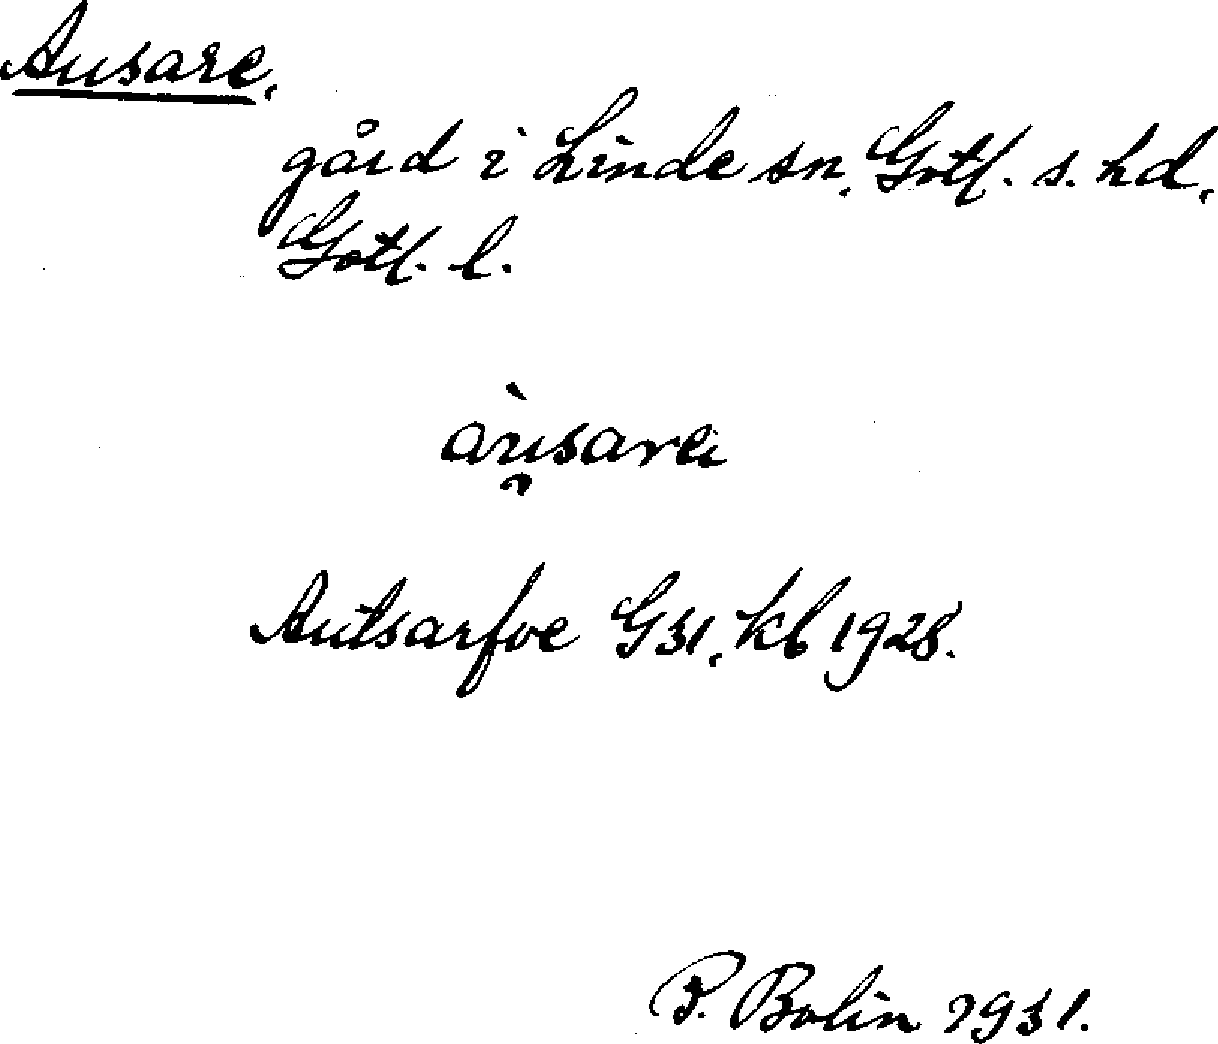 Ausare.
gård i Linde sn. Gotl. s. hd.
Gotl. l.
àu̯sarɐ
Autsarfve G31, kb 1928.
P. Bolin 1931.